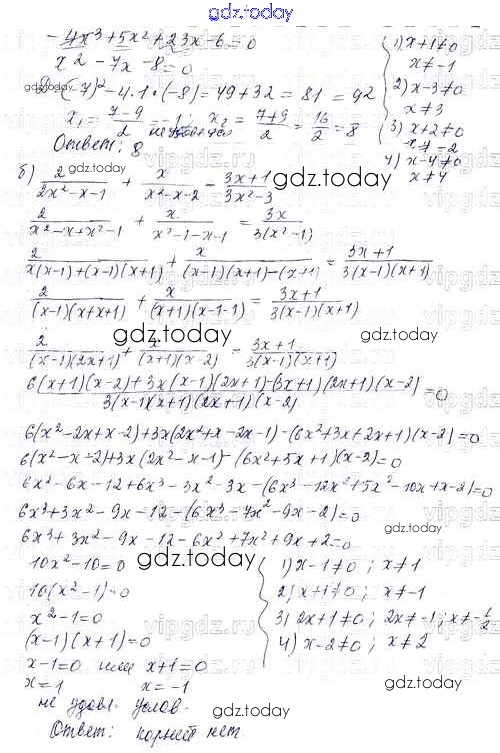 gdz.today
-4x³+5x²+23x-6=0
x²-7x-8=0
D=(-7)²-4·1·(-8)=49+32=81=9²
x₁=(7-9)/2=-1; x₂=(7+9)/2=16/2=8
Ответ: 8
1) x+1≠0
x≠-1
2) x-3≠0
x≠3
3) x+2≠0
x≠-2
4) x-4≠0
x≠4
gdz.today
б) 2/(2x²-x-1) + x/(x²-x-2) = (3x+1)/(3x²-3)
gdz.today
2/(x²-x+x²-1) + x/(x²-1-x-1) = 3x/(3(x²-1))
2/(x(x-1)+(x-1)(x+1)) + x/((x-1)(x+1)-(x+1)) = (3x+1)/(3(x-1)(x+1))
2/((x-1)(x+x+1)) + x/((x+1)(x-1-1)) = (3x+1)/(3(x-1)(x+1))
gdz.today
2/((x-1)(2x+1)) + x/((x+1)(x-2)) = (3x+1)/(3(x-1)(x+1))
(6(x+1)(x-2)+3x(x-1)(2x+1)-(3x+1)(2x+1)(x-2))/(3(x-1)(x+1)(2x+1)(x-2))=0
6(x²-2x+x-2)+3x(2x²+x-2x-1)-(6x²+3x+2x+1)(x-2)=0
6(x²-x-2)+3x(2x²-x-1)-(6x²+5x+1)(x-2)=0
6x²-6x-12+6x³-3x²-3x-(6x³-12x²+5x²-10x+x-2)=0
6x³+3x²-9x-12-(6x³-7x²-9x-2)=0
6x³+3x²-9x-12-6x³+7x²+9x+2=0
10x²-10=0
gdz.today
10(x²-1)=0
x²-1=0
(x-1)(x+1)=0
x-1=0 или x+1=0
x=1 x=-1
не удовл. услов.
Ответ: корней нет.
1) x-1≠0; x≠1
2) x+1≠0; x≠-1
3) 2x+1≠0; 2x≠-1; x≠-1/2
4) x-2≠0; x≠2
gdz.today
gdz.today